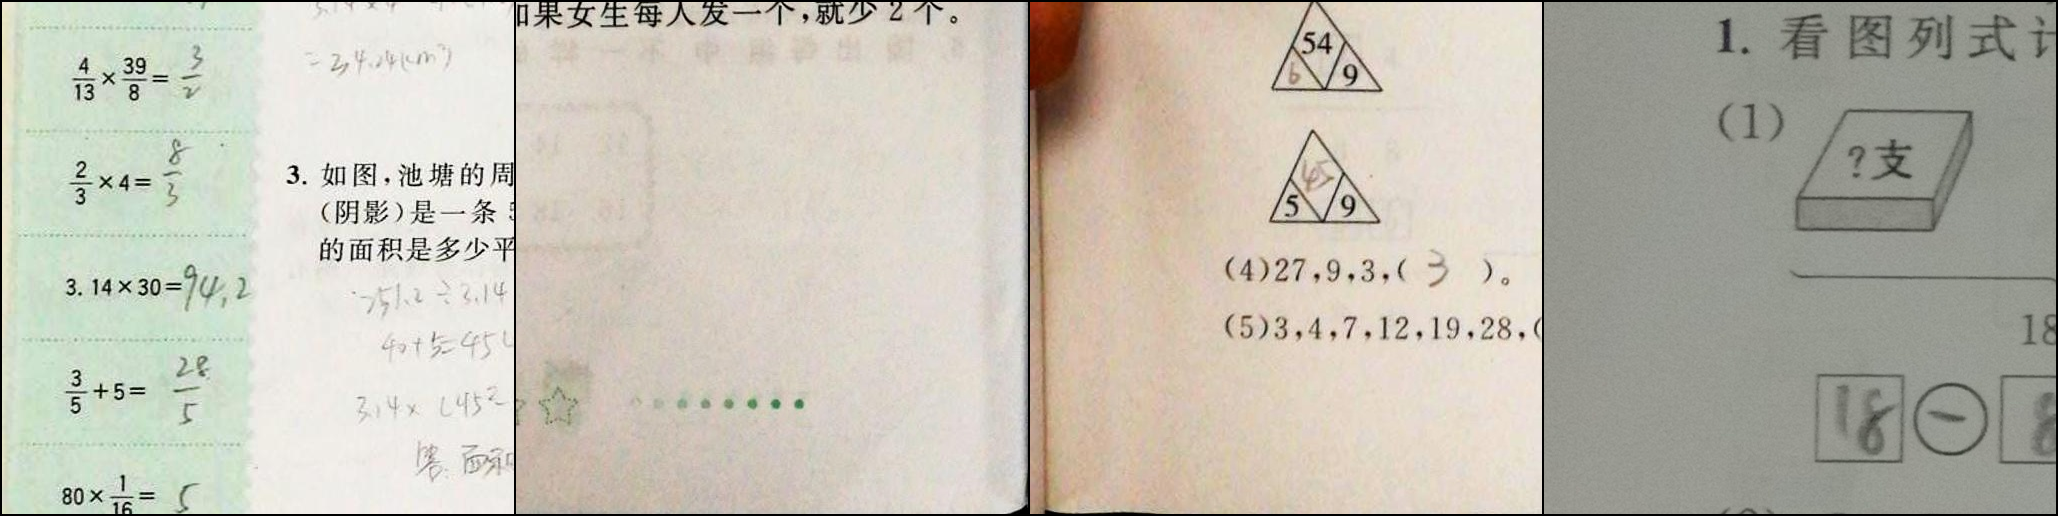 4/13 × 39/8 = 3/2
2/3 × 4 = 8/3
3.14×30=94.2
3/5 + 5 = 28/5
80 × 1/16 = 5
3. 如图,池塘的周
(阴影)是一条 5
的面积是多少平
251.2÷3.14
40+5=45(
3.14×(45²
答:面积
如果女生每人发一个,就少2个。
54
6 9
45
5 9
(4)27,9,3,( 3 )。
(5)3,4,7,12,19,28,(
1. 看图列式计
(1)
?支
18
18 - 8